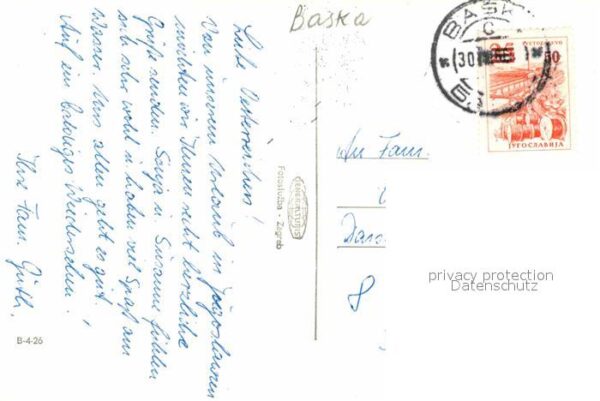 Baska
Liebe Oesterreicher!
Von unserem Urlaub in Jugoslawien
möchten wir Ihnen recht herzliche
Grüße senden. Sonja u. Susanne fühlen
sich sehr wohl u. haben viel Spaß am
Wasser. Uns allen geht es gut!
Auf ein baldiges Wiedersehen!
Ihre Fam.
B-4-26
Fotostudba - Zagreb
An Fam.
8
BAŠKA
30
JUGOSLAVIJA
privacy protection
Datenschutz